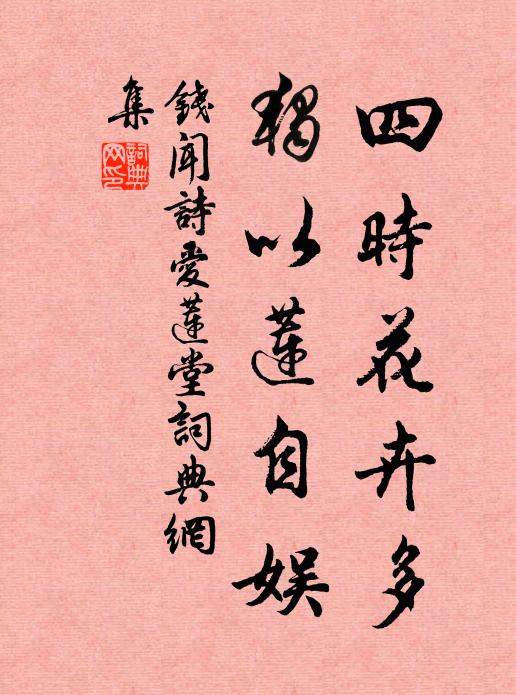 四時花卉多
獨以蓮自娛
錢聞詩愛蓮堂詞典網
集
詞典
网印